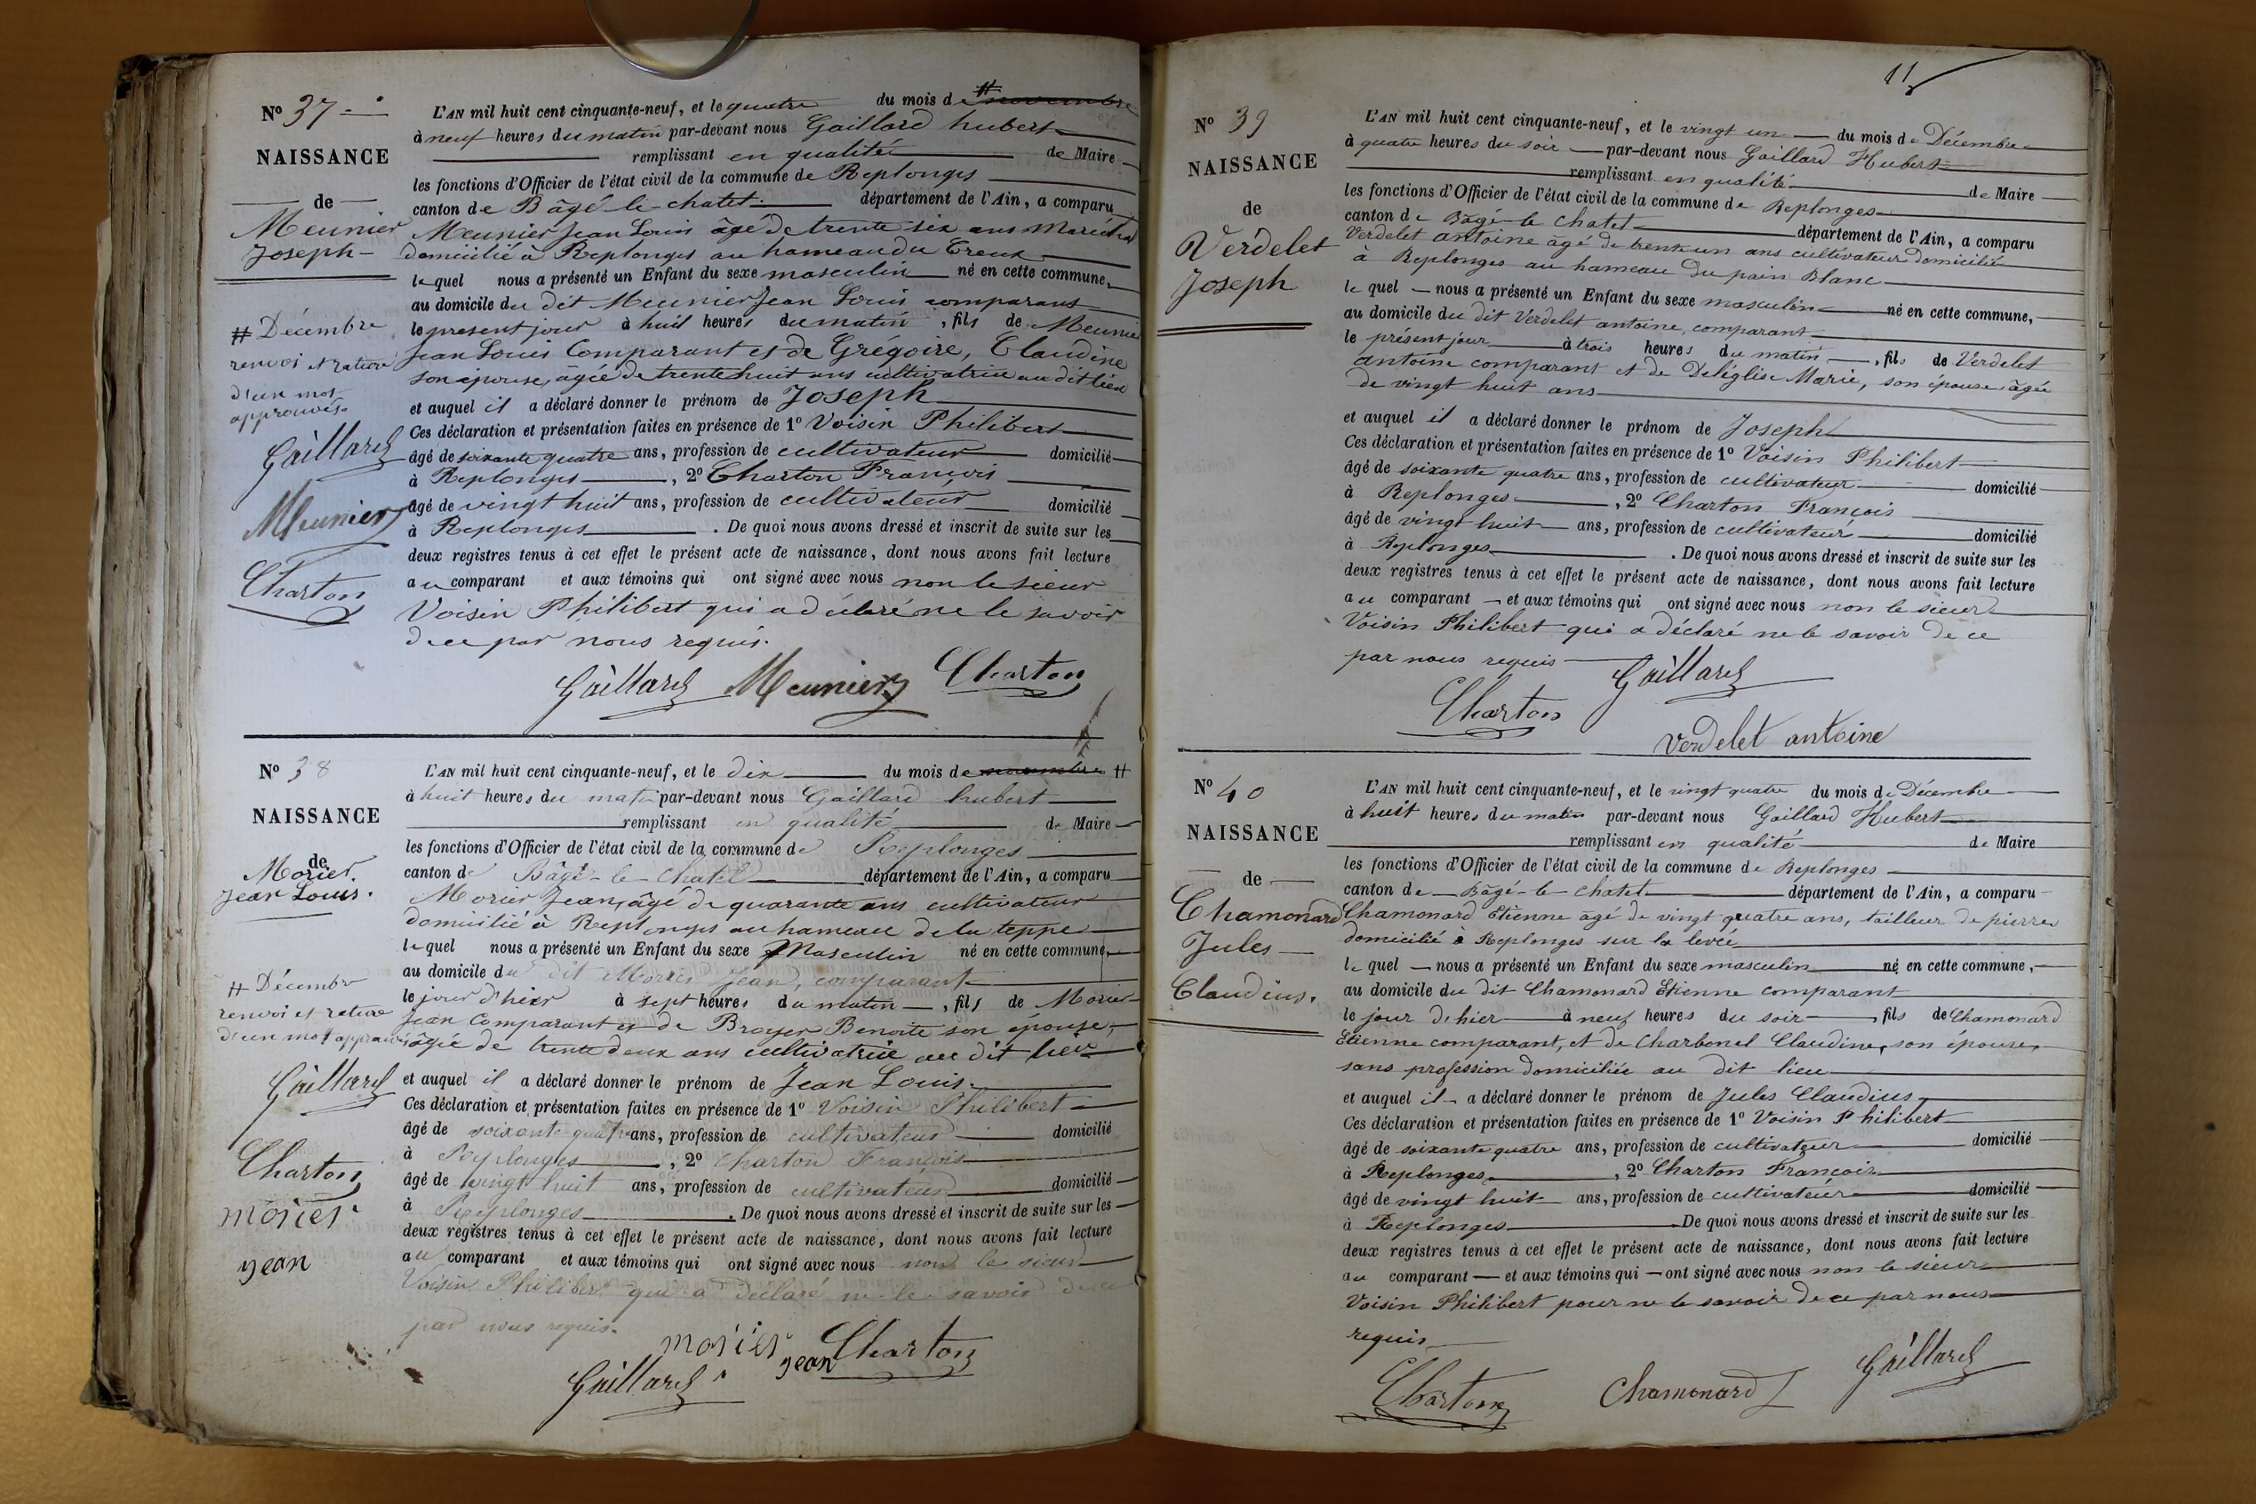 N° 37
NAISSANCE
de
Meunier
Joseph
# Décembre
renvoi et rature
d'un mot
approuvés
Gaillard
Meunier
Charton
L'AN mil huit cent cinquante-neuf, et le quatre du mois de # novembre
à neuf heures du matin par-devant nous Gaillard hubert
remplissant en qualité de Maire
les fonctions d'Officier de l'état civil de la commune de Replonges
canton de Bâgé-le-chatel département de l'Ain, a comparu
Meunier Jean Louis âgé de trente six ans Maréchal
domicilié à Replonges au hameau du Creux
lequel nous a présenté un Enfant du sexe masculin né en cette commune,
au domicile du dit Meunier Jean Louis comparant
le présent jour à huit heures du matin, fils de Meunier
Jean Louis Comparant et de Grégoire, Claudine
son épouse, âgée de trente huit ans cultivatrice au dit lieu
et auquel il a déclaré donner le prénom de Joseph
Ces déclaration et présentation faites en présence de 1° Voisin Philibert
âgé de soixante quatre ans, profession de cultivateur domicilié
à Replonges, 2° Charton François
âgé de vingt huit ans, profession de cultivateur domicilié
à Replonges. De quoi nous avons dressé et inscrit de suite sur les
deux registres tenus à cet effet le présent acte de naissance, dont nous avons fait lecture
au comparant et aux témoins qui ont signé avec nous non le sieur
Voisin Philibert qui a déclaré ne le savoir
de ce par nous requis.
Gaillard Meunier Charton
N° 38
NAISSANCE
de
Morier
Jean Louis.
# Décembre
renvoi et rature
d'un mot approuvés
Gaillard
Charton
morier
jean
L'AN mil huit cent cinquante-neuf, et le dix du mois de novembre #
à huit heures du matin par-devant nous Gaillard hubert
remplissant en qualité de Maire
les fonctions d'Officier de l'état civil de la commune de Replonges
canton de Bâgé-le-chatel département de l'Ain, a comparu
Morier Jean, âgé de quarante ans cultivateur
domicilié à Replonges au hameau de la teppe
lequel nous a présenté un Enfant du sexe Masculin né en cette commune,
au domicile du dit Morier Jean, comparant
le jour d'hier à sept heures du matin, fils de Morier
Jean Comparant et de Broyer Benoite son épouse,
âgée de trente deux ans cultivatrice au dit lieu
et auquel il a déclaré donner le prénom de Jean Louis.
Ces déclaration et présentation faites en présence de 1° Voisin Philibert
âgé de soixante quatre ans, profession de cultivateur domicilié
à Replonges, 2° Charton François
âgé de vingt huit ans, profession de cultivateur domicilié
à Replonges. De quoi nous avons dressé et inscrit de suite sur les
deux registres tenus à cet effet le présent acte de naissance, dont nous avons fait lecture
au comparant et aux témoins qui ont signé avec nous non le sieur
Voisin Philibert qui a déclaré ne le savoir de ce
par nous requis.
morier jean Charton
Gaillard
11
N° 39
NAISSANCE
de
Verdelet
Joseph
L'AN mil huit cent cinquante-neuf, et le vingt un du mois de Décembre
à quatre heures du soir par-devant nous Gaillard Hubert
remplissant en qualité de Maire
les fonctions d'Officier de l'état civil de la commune de Replonges
canton de Bâgé-le chatel département de l'Ain, a comparu
Verdelet antoine âgé de trente un ans cultivateur domicilié
à Replonges au hameau du pain Blanc
lequel nous a présenté un Enfant du sexe masculin né en cette commune,
au domicile du dit Verdelet antoine, comparant
le présent jour à trois heures du matin, fils de Verdelet
antoine comparant et de Deléglise Marie, son épouse âgée
de vingt huit ans
et auquel il a déclaré donner le prénom de Joseph
Ces déclaration et présentation faites en présence de 1° Voisin Philibert
âgé de soixante quatre ans, profession de cultivateur domicilié
à Replonges, 2° Charton François
âgé de vingt huit ans, profession de cultivateur domicilié
à Replonges. De quoi nous avons dressé et inscrit de suite sur les
deux registres tenus à cet effet le présent acte de naissance, dont nous avons fait lecture
au comparant et aux témoins qui ont signé avec nous non le sieur
Voisin Philibert qui a déclaré ne le savoir de ce
par nous requis
Charton Gaillard
Verdelet antoine
N° 40
NAISSANCE
de
Chamonard
Jules
Claudius.
L'AN mil huit cent cinquante-neuf, et le vingt quatre du mois de Décembre
à huit heures du matin par-devant nous Gaillard Hubert
remplissant en qualité de Maire
les fonctions d'Officier de l'état civil de la commune de Replonges
canton de Bâgé-le chatel département de l'Ain, a comparu
Chamonard Etienne âgé de vingt quatre ans, tailleur de pierre
domicilié à Replonges sur la levée
lequel nous a présenté un Enfant du sexe masculin né en cette commune,
au domicile du dit Chamonard Etienne comparant
le jour d'hier à neuf heures du soir, fils de Chamonard
Etienne comparant, et de Charbonel Claudine, son épouse,
sans profession domiciliée au dit lieu
et auquel il a déclaré donner le prénom de Jules Claudius
Ces déclaration et présentation faites en présence de 1° Voisin Philibert
âgé de soixante quatre ans, profession de cultivateur domicilié
à Replonges, 2° Charton François
âgé de vingt huit ans, profession de cultivateur domicilié
à Replonges De quoi nous avons dressé et inscrit de suite sur les
deux registres tenus à cet effet le présent acte de naissance, dont nous avons fait lecture
au comparant et aux témoins qui ont signé avec nous non le sieur
Voisin Philibert pour ne le savoir de ce par nous
requis
Charton Chamonard Gaillard